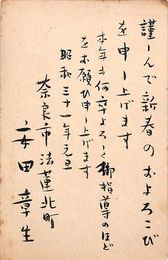 謹んで新春のおよろこび
を申し上げます
本年も何卒よろしく御指導のほど
をお願ひ申し上げます
昭和三十一年元旦
奈良市法蓮北町
安田章生